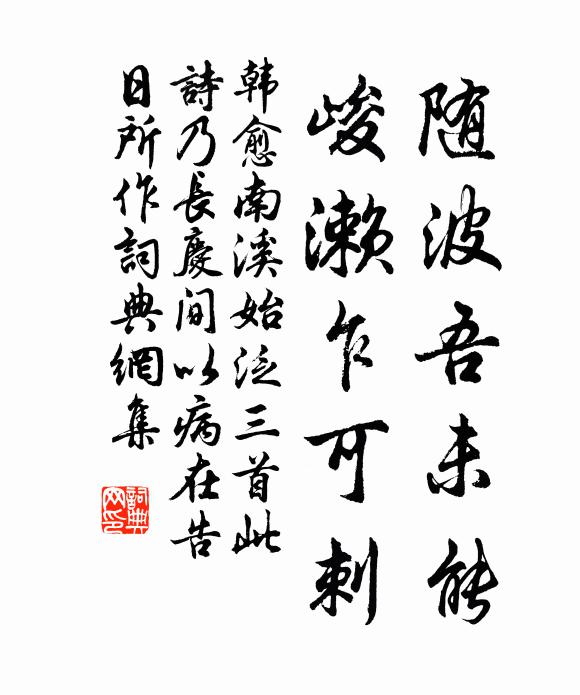 随波吾未能
峻濑乍可刺
韩愈南溪始泛三首此
詩乃長慶间以病在告
日所作詞典網集
詞典
网印